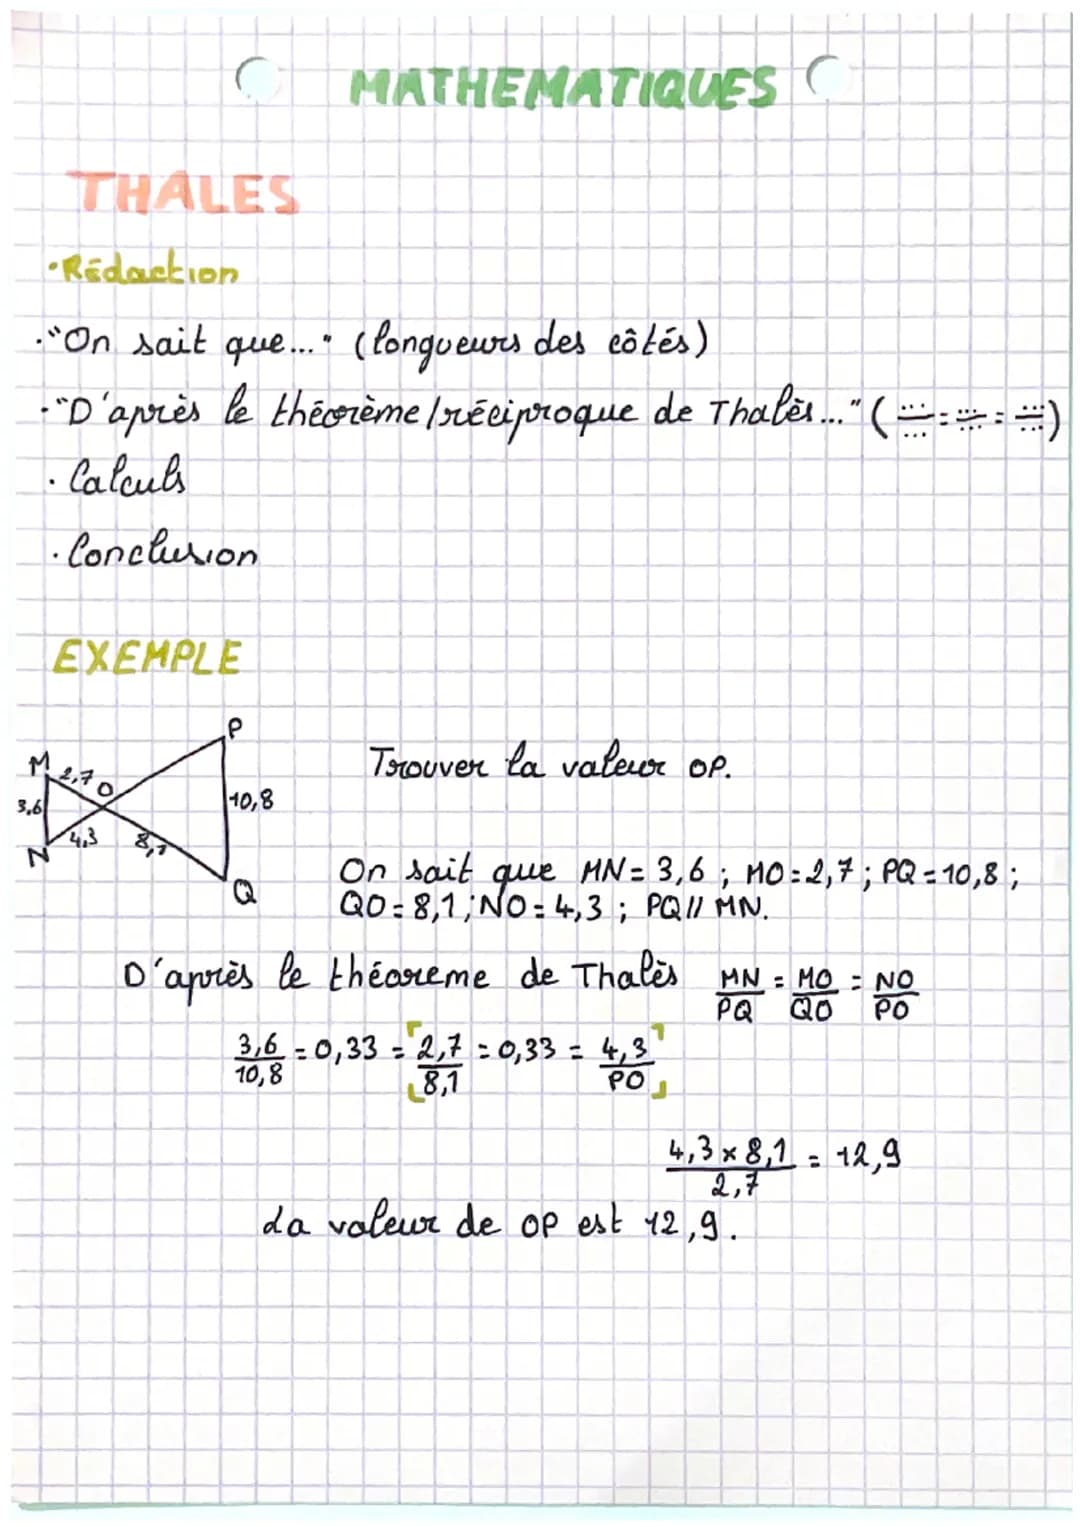 MATHEMATIQUES
THALES
•Rédaction
•"On sait que..." (longueurs des côtés)
•"D'après le théorème/réciproque de Thalès..." (.../... = .../... = .../...)
• Calculs
• Conclusion
EXEMPLE
P
M 2,7 O
3,6
10,8
N 4,3 8,1
Q
Trouver la valeur OP.
On sait que MN = 3,6 ; MO = 2,7 ; PQ = 10,8 ;
QO = 8,1 ; NO = 4,3 ; PQ // MN.
D'après le théoreme de Thalès MN/PQ = MO/QO = NO/PO
3,6/10,8 = 0,33 = 2,7/8,1 = 0,33 = 4,3/PO
4,3 × 8,1/2,7 = 12,9
La valeur de OP est 12,9.